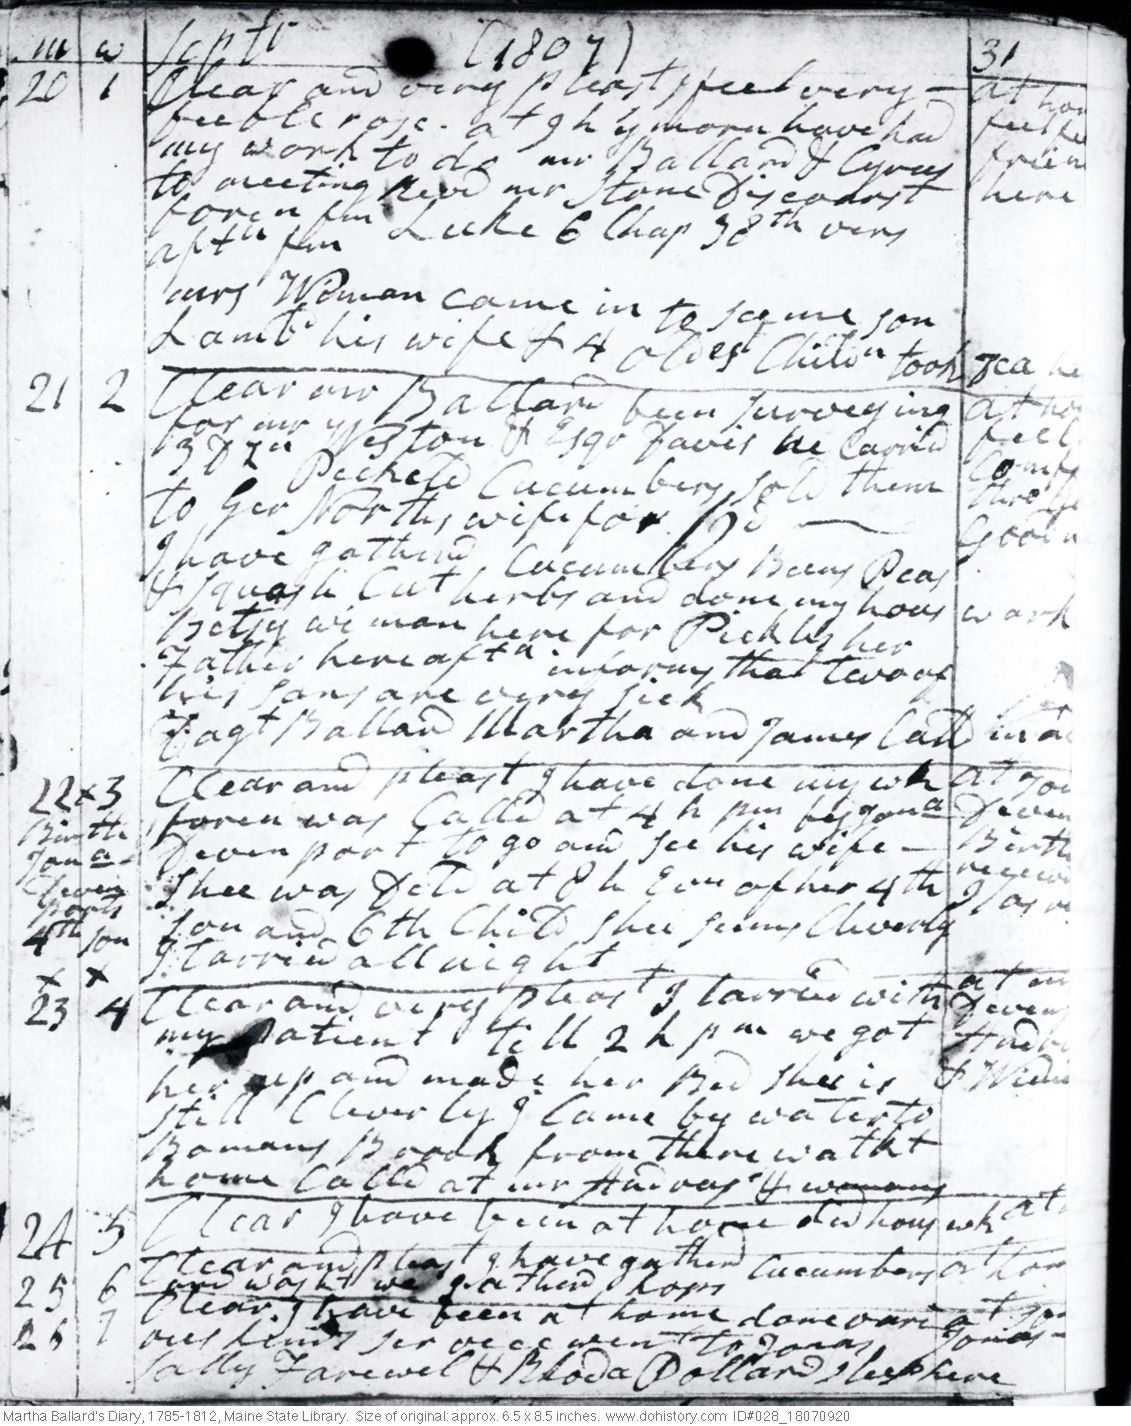 m w Septr (1807) 31
20 1 Clear and very pleast I feel very – at hom
feeble rose. at 9 h y morn have had
my work to do mr Ballard & Cyrus frien
to meeting Revd mr Stone Discourst here
foren fm Luke 6 Chap 38th vers
aftn fm
mrs Weman came in to see me son
Lambd his wife & 4 oldest Childn took Tea he
21 2 Clear mr Ballard been surveying at hom
for mr Weston & Esqr Davis he Carrid feel
3 Dzn Pickeld Cucumbers sold them Comfo
to Ger Norths wife for
I have gatherd Cucumbers Beens Peas
& Squash Cut herbs and done my hous work
Betsy weman here for Pickls her
Father here aftn informs that two of
his sons are very sick
Dagt Ballard Martha and James Calld in
22 x 3 Clear and pleast I have done my wk at
Birth foren was Calld at 4 h pm by Jona Deven
Jona – Devenport to go and see his wife – Birth
Deven Shee was Deld at 8 h Evn of her 4th receivd
ports
4th son son and 6th Child Shee seems Cleverly
I tarried all night
x x
23 4 Clear and very pleast I tarried with at
my patient till 2 h pm we got Deven
her up and made her Bed shee is &
still Cleverly I Came by water to
Bomans Brook from there walkt
home Calld at mr Andrus & wemans
24 5 Clear I have been at home did hous wk at
25 6 Clear and pleast I have gatherd Cucumbers at hom
and washt we gatherd hops
26 7 Clear I have been at home done vari at
ous kinds service went to Jonas Jonas
Sally Farewel & Rhoda Pollard sleep here
Martha Ballard's Diary, 1785-1812, Maine State Library. Size of original: approx. 6.5 x 8.5 inches. www.dohistory.com ID#028_18070920